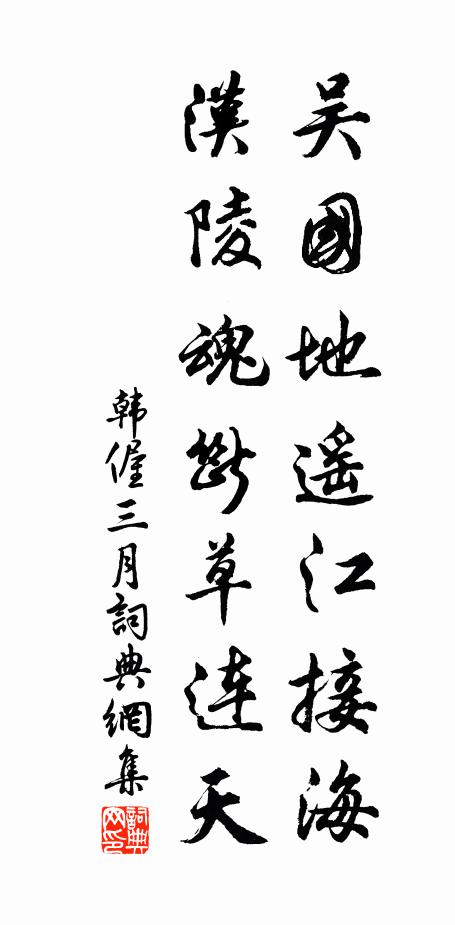 吴國地遥江接海
漢陵魂斷草連天
韩偓三月詞典網集
詞典网印